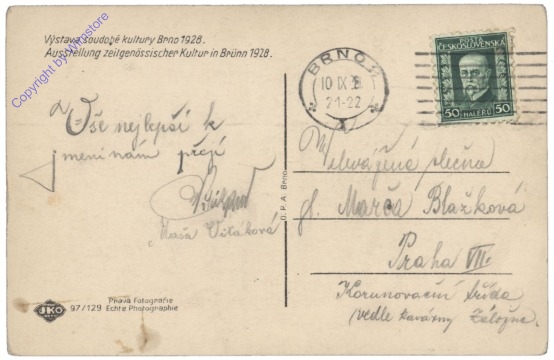 Výstava soudobé kultury Brno 1928.
Ausstellung zeitgenössischer Kultur in Brünn 1928.
copyright by wytestore
BRNO 2
10 IX 28
21-22
POŠTA
ČESKOSLOVENSKÁ
50 HALÉŘŮ 50
Vše nejlepší k
jmeninám přejí
Máša Vitáková
O.P.A. Brno
Velevážená slečna
sl. Marča Blažková
Praha VII.
Korunovační třída
vedle kavárny
JKO
97/129
Pravá Fotografie
Echte Photographie